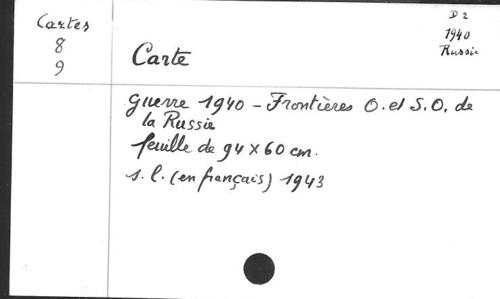 Cartes
8
9
D 2
1940
Russie
Carte
Guerre 1940 - Frontières O. et S.O. de
la Russie
feuille de 94 x 60 cm.
s. l. (en français) 1943